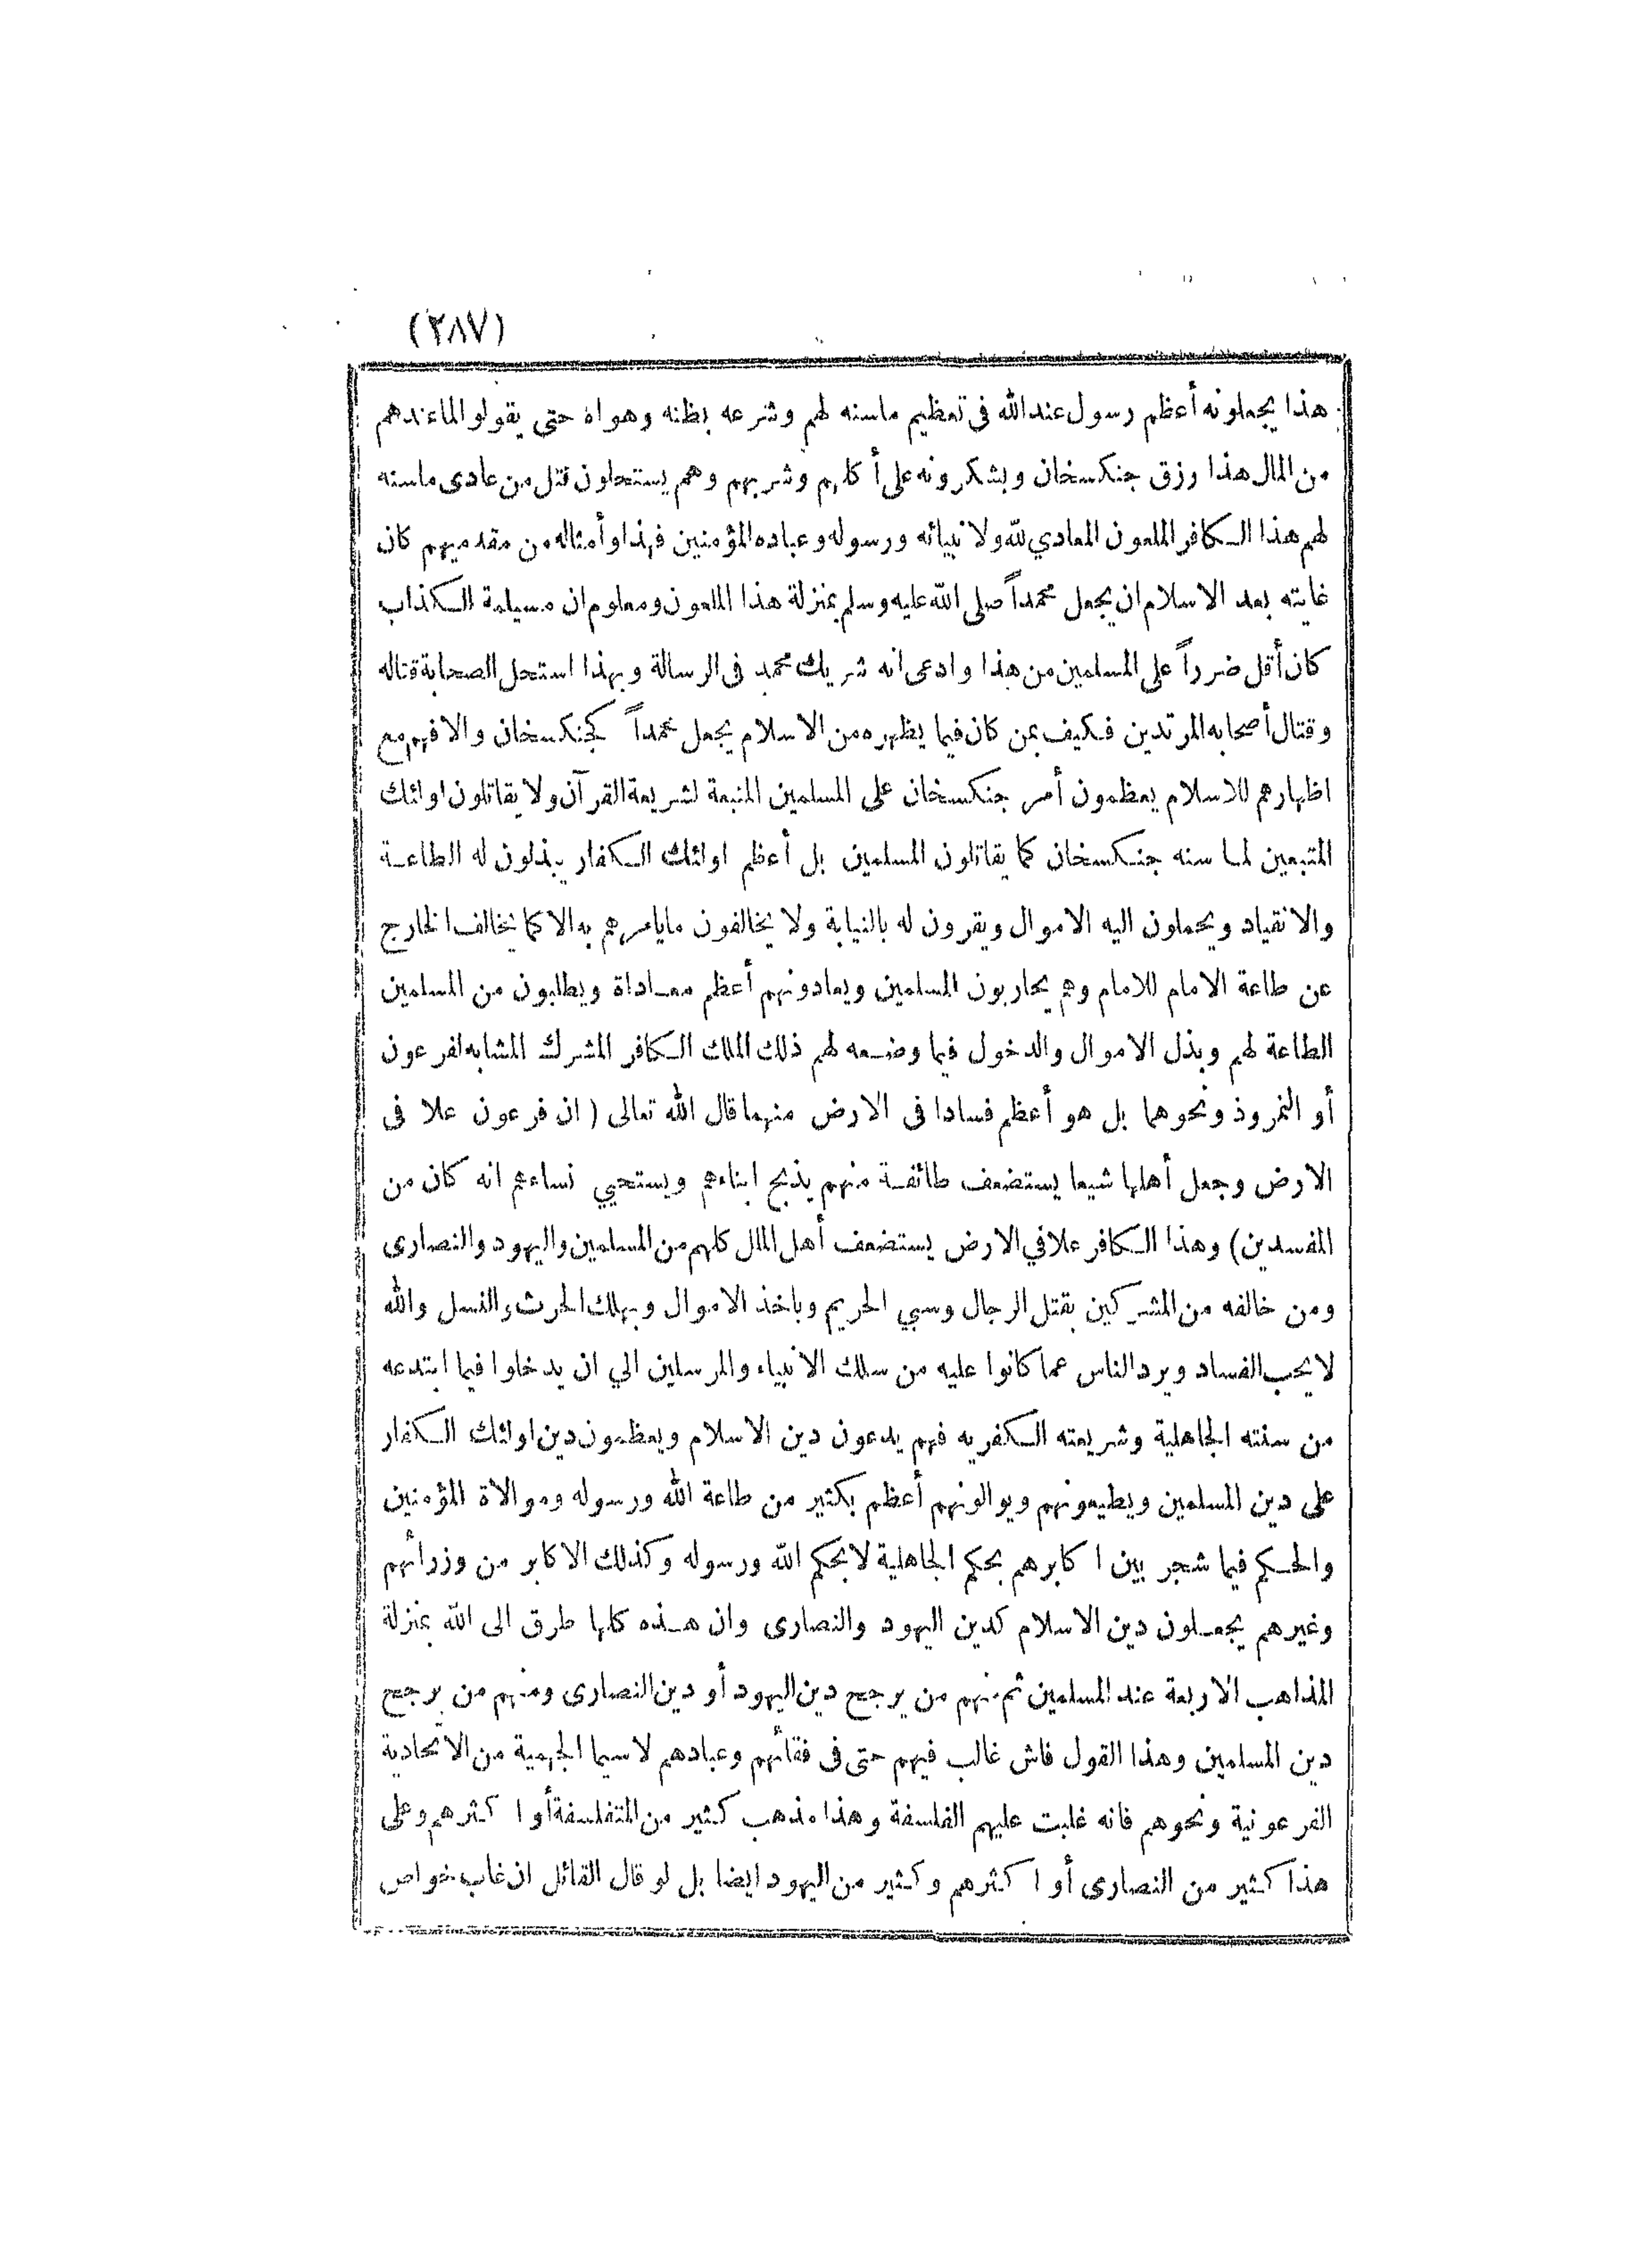 (٢٨٧)
هذا يجعلونه أعظم رسول عند الله فى تعظيم ماسنه لهم وشرعه بظنه وهواه حتى يقولوا لماعندهم
من المال هذا رزق جنكسخان ويشكرونه على أكلهم وشربهم وهم يستحلون قتل من عادى ماسنه
لهم هذا الكافر الملعون المعادي لله ولانبيائه ورسوله وعباده المؤمنين فهذا وأمثاله من مقدميهم كان
غايته بعد الاسلام ان يجعل محمداً صلى الله عليه وسلم بمنزلة هذا الملعون ومعلوم ان مسيلمة الكذاب
كان أقل ضرراً على المسلمين من هذا وادعى انه شريك محمد فى الرسالة وبهذا استحل الصحابة قتاله
وقتال أصحابه المرتدين فكيف بمن كان فيما يظهره من الاسلام يجعل محمداً كجنكسخان والا فهم مع
اظهارهم للاسلام يعظمون أمر جنكسخان على المسلمين المتبعة لشريعة القرآن ولا يقاتلون اولئك
المتبعين لما سنه جنكسخان كما يقاتلون المسلمين بل أعظم اولئك الكفار يبذلون له الطاعة
والانقياد ويحملون اليه الاموال ويقرون له بالنيابة ولا يخالفون مايامرهم به الا كما يخالف الخارج
عن طاعة الامام للامام وهم يحاربون المسلمين ويعادونهم أعظم معاداة ويطلبون من المسلمين
الطاعة لهم وبذل الاموال والدخول فيما وضعه لهم ذلك الملك الكافر المشرك المشابه لفرعون
أو النمروذ ونحوهما بل هو أعظم فسادا فى الارض منهما قال الله تعالى ( ان فرعون علا فى
الارض وجعل أهلها شيعا يستضعف طائفة منهم يذبح ابناءهم ويستحيي نساءهم انه كان من
المفسدين) وهذا الكافر علا في الارض يستضعف أهل الملل كلهم من المسلمين واليهود والنصارى
ومن خالفه من المشركين بقتل الرجال وسبي الحريم وياخذ الاموال ويهلك الحرث والنسل والله
لا يحب الفساد ويرد الناس عما كانوا عليه من سلك الانبياء والمرسلين الي ان يدخلوا فيما ابتدعه
من سنته الجاهلية وشريعته الكفريه فهم يدعون دين الاسلام ويعظمون دين اولئك الكفار
على دين المسلمين ويطيعونهم ويوالونهم أعظم بكثير من طاعة الله ورسوله وموالاة المؤمنين
والحكم فيما شجر بين اكابرهم بحكم الجاهلية لابحكم الله ورسوله وكذلك الاكابر من وزرأئهم
وغيرهم يجعلون دين الاسلام كدين اليهود والنصارى وان هذه كلها طرق الى الله بمنزلة
المذاهب الاربعة عند المسلمين ثم منهم من يرجح دين اليهود أو دين النصارى ومنهم من يرجح
دين المسلمين وهذا القول فاش غالب فيهم حتى فى فقهائهم وعبادهم لاسيما الجهمية من الاتحادية
الفرعونية ونحوهم فانه غلبت عليهم الفلسفة وهذا مذهب كثير من المتفلسفة أو اكثرهم وعلى
هذا كثير من النصارى أو اكثرهم وكثير من اليهود ايضا بل لو قال القائل ان غاب خواص